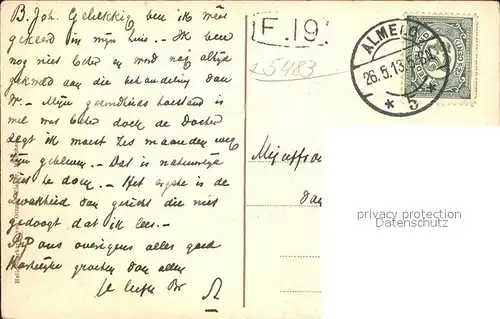 B. Joh. Gelukkig ben ik weer
gekeerd in mijn huis. – Ik ben
nog niet beter en word nog altijd
gekweld aan die behandeling van
Dr – Mijn gezondheids toestand is
wel wat beter doch de Docter
zegt ik moest zes maanden weg
zijn gebleven. – Dat is natuurlijk
niet te doen. – Het ergste is de
zwakheid van gezicht die niet
gedoogt dat ik lees. –
Bij ons overigens alles goed
Hartelijke groeten van allen
je liefh Br
F. 19
5483
ALMELO
26.5.13
5
Mejuffrou
van
privacy protection
Datenschutz